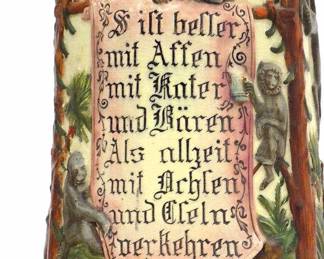 Es ist besser
mit Affen
mit Kater
und Bären
Als allzeit
mit Ochsen
und Eseln
verkehren